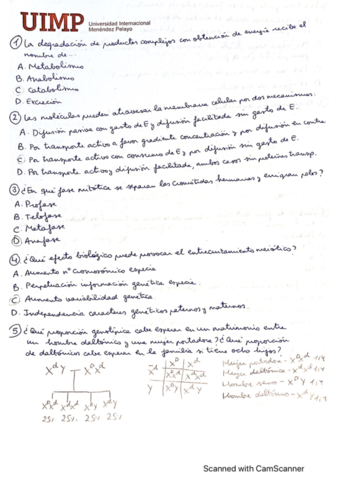 UIMP Universidad Internacional
Menéndez Pelayo
① La degradación de productos complejos con obtención de energía recibe el
nombre de...
A. Metabolismo
B. Anabolismo
C. Catabolismo
D. Excreción
② Las moléculas pueden atravesar la membrana celular por dos mecanismos.
A. Difusión pasiva con gasto de E y difusión facilitada sin gasto de E.
B. Por transporte activo a favor gradiente concentración y por difusión en contra
C. Por transporte activo con consumo de E y por difusión sin gasto de E.
D. Por transporte activo y difusión facilitada, ambos casos sin proteínas transp.
③ ¿En qué fase mitótica se separan las cromátidas hermanas y emigran polos?
A. Profase
B. Telofase
C. Metafase
D. Anafase
④ ¿Qué efecto biológico puede provocar el entrecruzamiento meiótico?
A. Aumento nº cromosómico especie
B. Perpetuación información genética especie.
C. Aumento variabilidad genética
D. Independencia caracteres genéticos paternos y maternos.
⑤ ¿Qué proporción genotípica cabe esperar en un matrimonio entre
un hombre daltónico y una mujer portadora? ¿Qué proporción
de daltónicos cabe esperar en la familia si tiene ocho hijos?
XᵈY XᴰXᵈ
Xᴰ Xᵈ
Xᵈ XᴰXᵈ XᵈXᵈ
Y XᴰY XᵈY
Mujer portadora - XᴰXᵈ 1/4
Mujer daltónica - XᵈXᵈ 1/4
Hombre sano - XᴰY 1/4
Hombre daltónico - XᵈY 1/4
XᴰXᵈ XᵈXᵈ XᴰY XᵈY
25% 25% 25% 25%
Scanned with CamScanner